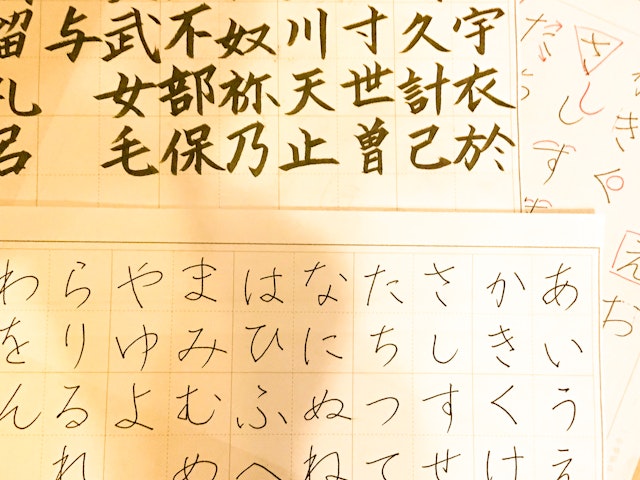 宇衣於
久計己
寸世曽
川天止
奴祢乃
不部保
武女毛
与
留礼呂
あいうえ
かきくけ
さしすせ
たちつて
なにぬね
はひふへ
まみむめ
やゆよ
らりるれ
わをん
き
えお
さしす